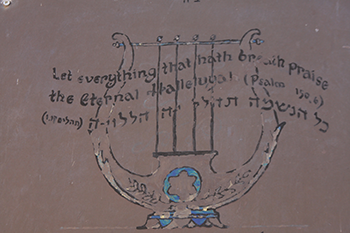 Let everything that hath breath praise
the Eternal Hallelujah (Psalm 150,6)
כל הנשמה תהלל יה הללויה